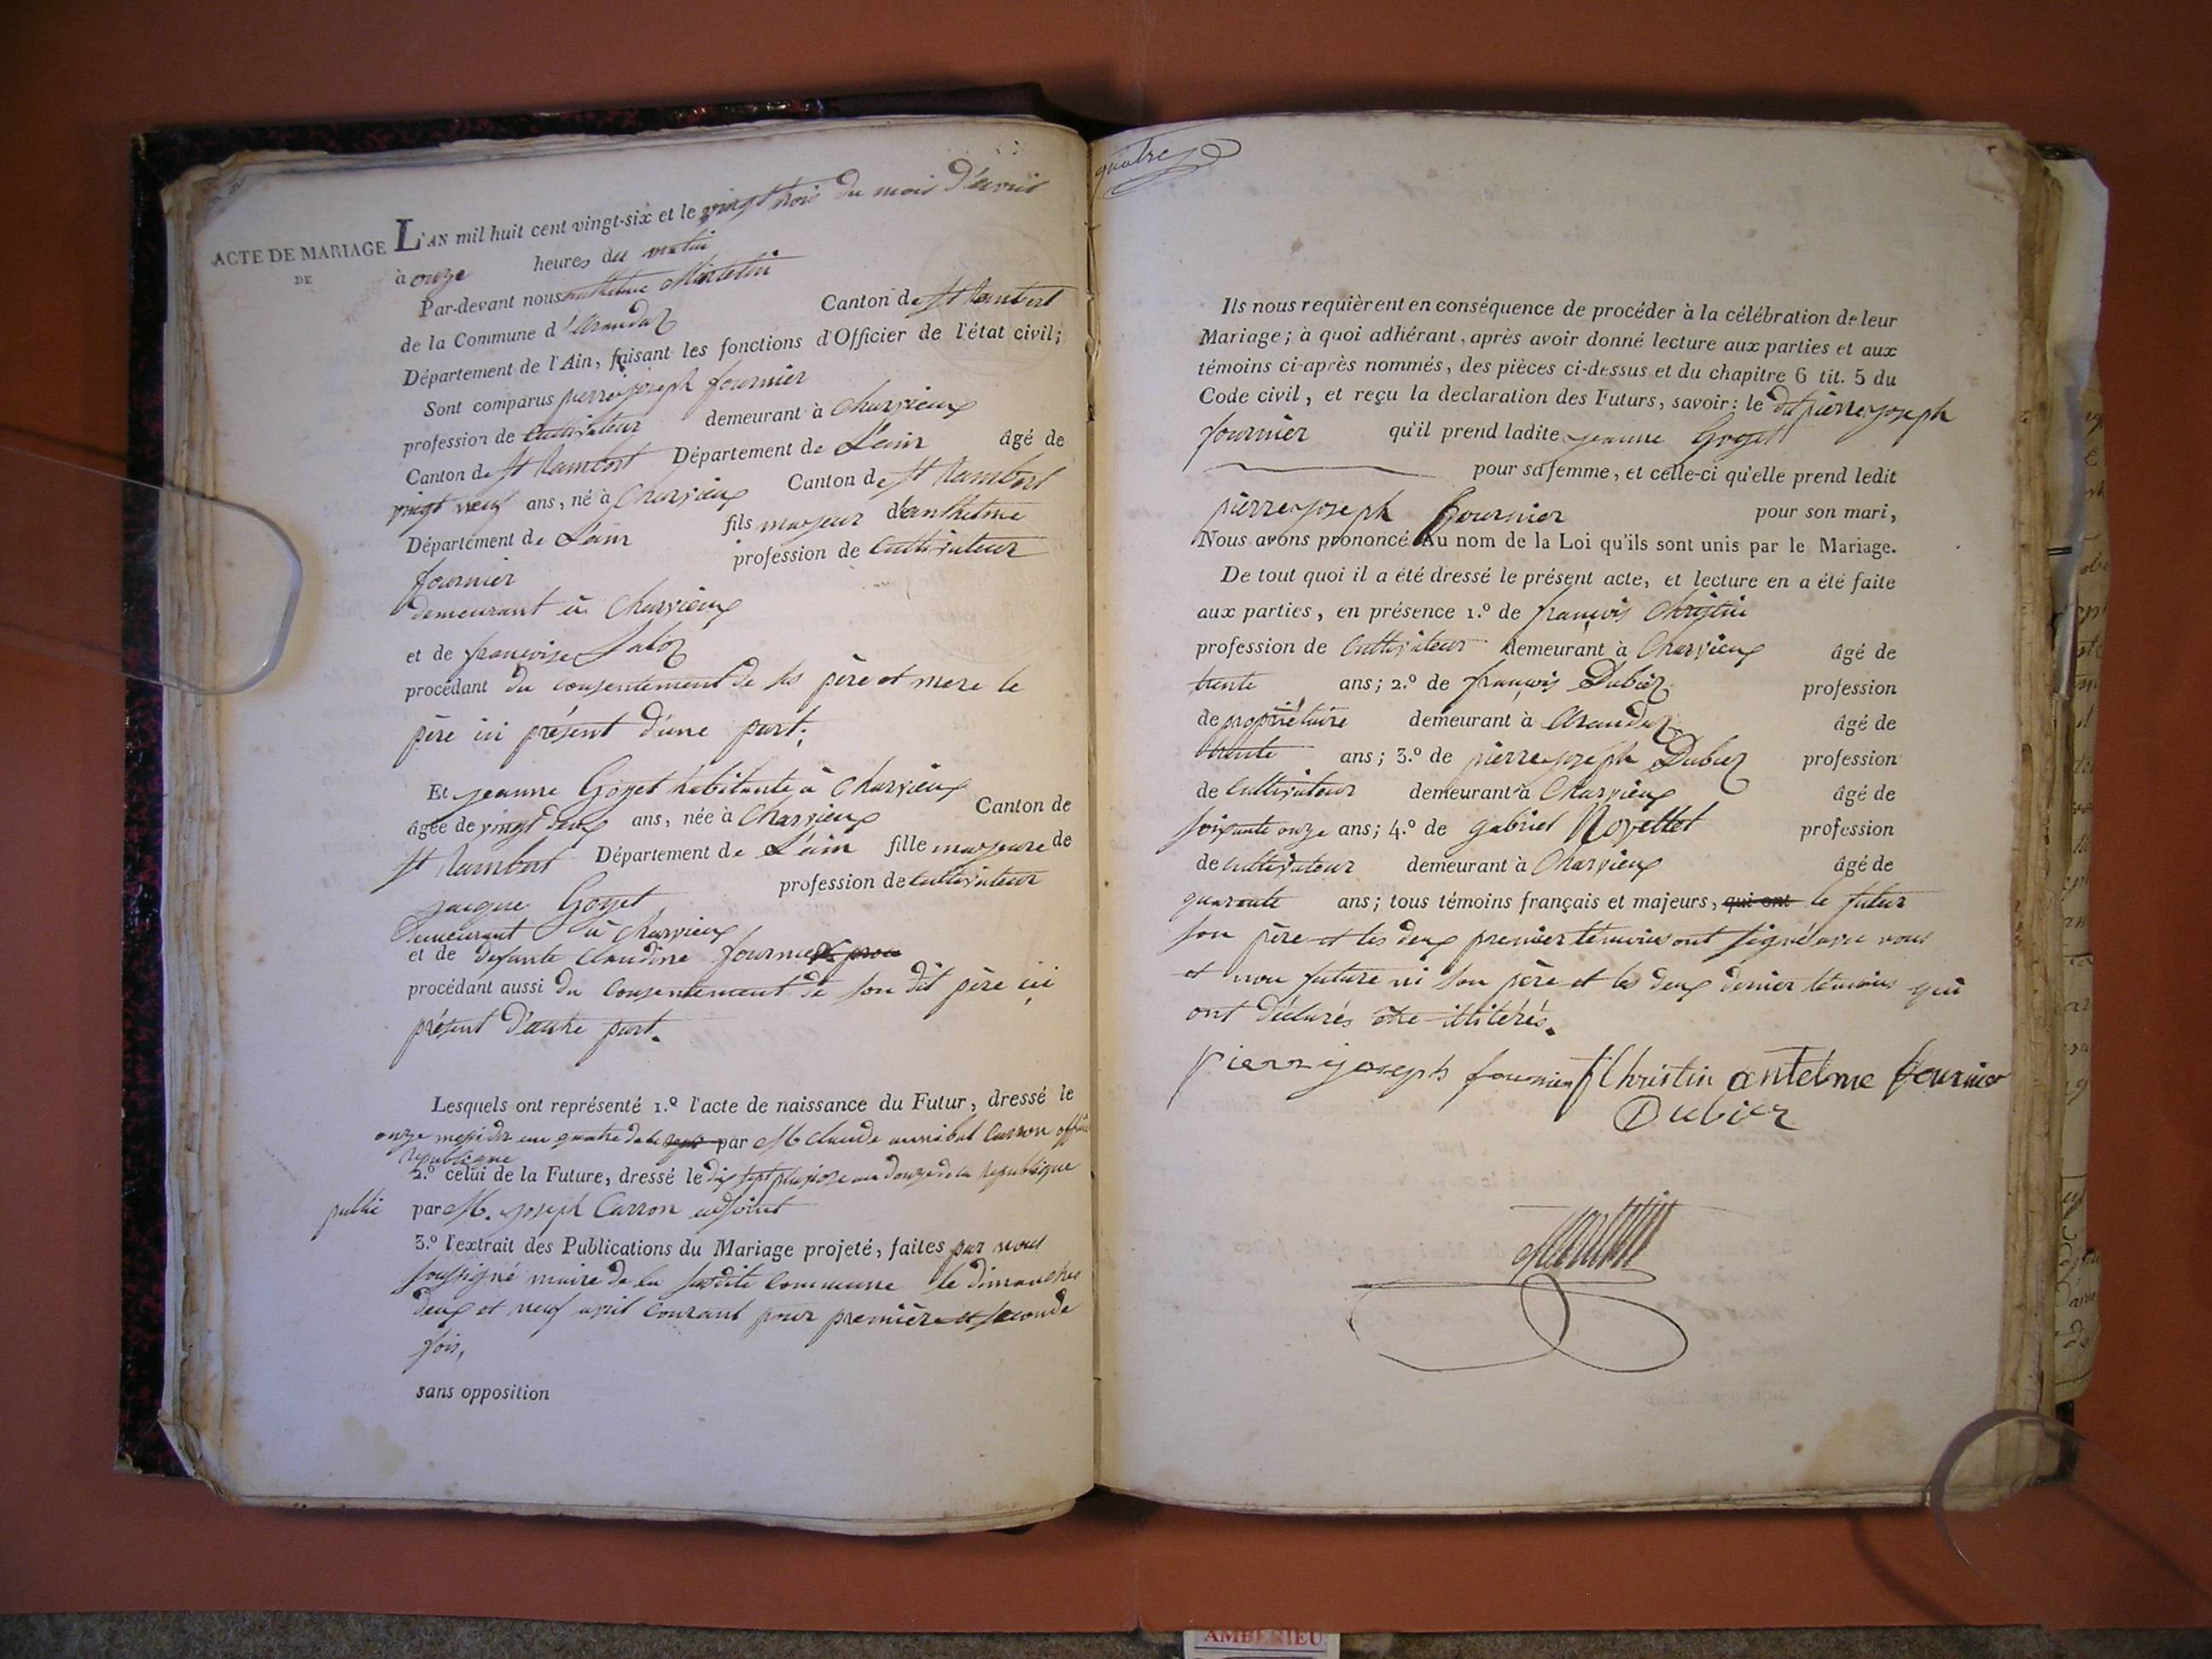 L'AN mil huit cent vingt-six et le vingt trois du mois d'avril
ACTE DE MARIAGE
DE
à onze heures du matin
Par-devant nous anthelme Martelin
de la Commune d'Arandaz Canton de St Rambert
Département de l'Ain, faisant les fonctions d'Officier de l'état civil;
Sont comparus pierre joseph fournier
profession de Cultivateur demeurant à Charvieux
Canton de St Rambert Département de L'ain âgé de
vingt neuf ans, né à Charvieux Canton de St Rambert
Département de L'ain fils majeur d'anthelme
fournier profession de Cultivateur
demeurant à Charvieux
et de françoise
procédant du consentement de ses père et mere le
père ici présent d'une part;
Et jeanne Goyet habitante à Charvieux
âgée de vingt deux ans, née à Charvieux Canton de
St Rambert Département de L'ain fille majeure de
jacque Goyet profession de Cultivateur
demeurant à Charvieux
et de defunte Claudine fournier
procédant aussi du Consentement de son dit père ici
présent d'autre part.
Lesquels ont représenté 1.º l'acte de naissance du Futur, dressé le
onze messidor an quatre de la par M. Claude annibal Carron officier
republique
2.º celui de la Future, dressé le dix sept pluviose an douze de la republique
public par M. joseph Carron adjoint
3.º l'extrait des Publications du Mariage projeté, faites par nous
soussigné maire de la susdite Commune le dimanches
deux et neuf avril Courant pour première et seconde
fois,
sans opposition
quatre
Ils nous requièrent en conséquence de procéder à la célébration de leur
Mariage; à quoi adhérant, après avoir donné lecture aux parties et aux
témoins ci-après nommés, des pièces ci-dessus et du chapitre 6 tit. 5 du
Code civil, et reçu la declaration des Futurs, savoir: le dit pierre joseph
fournier qu'il prend ladite jeanne Goyet
pour sa femme, et celle-ci qu'elle prend ledit
pierre joseph fournier pour son mari,
Nous avons prononcé Au nom de la Loi qu'ils sont unis par le Mariage.
De tout quoi il a été dressé le présent acte, et lecture en a été faite
aux parties, en présence 1.º de françois Christin
profession de Cultivateur demeurant à Charvieux âgé de
trente ans; 2.º de françois Dubiez profession
de propriétaire demeurant à Arandaz âgé de
trente ans; 3.º de pierre joseph Dubiez profession
de Cultivateur demeurant à Charvieux âgé de
soixante onze ans; 4.º de gabriel profession
de Cultivateur demeurant à Charvieux âgé de
quarante ans; tous témoins français et majeurs, qui ont le futur
son père et les deux premier témoins ont signé avec nous
et non future ni son père et les deux dernier témoins qui
ont déclarés être illitérés.
pierre joseph fournier f Christin antelme fournier
Dubiez
AMBERIEU